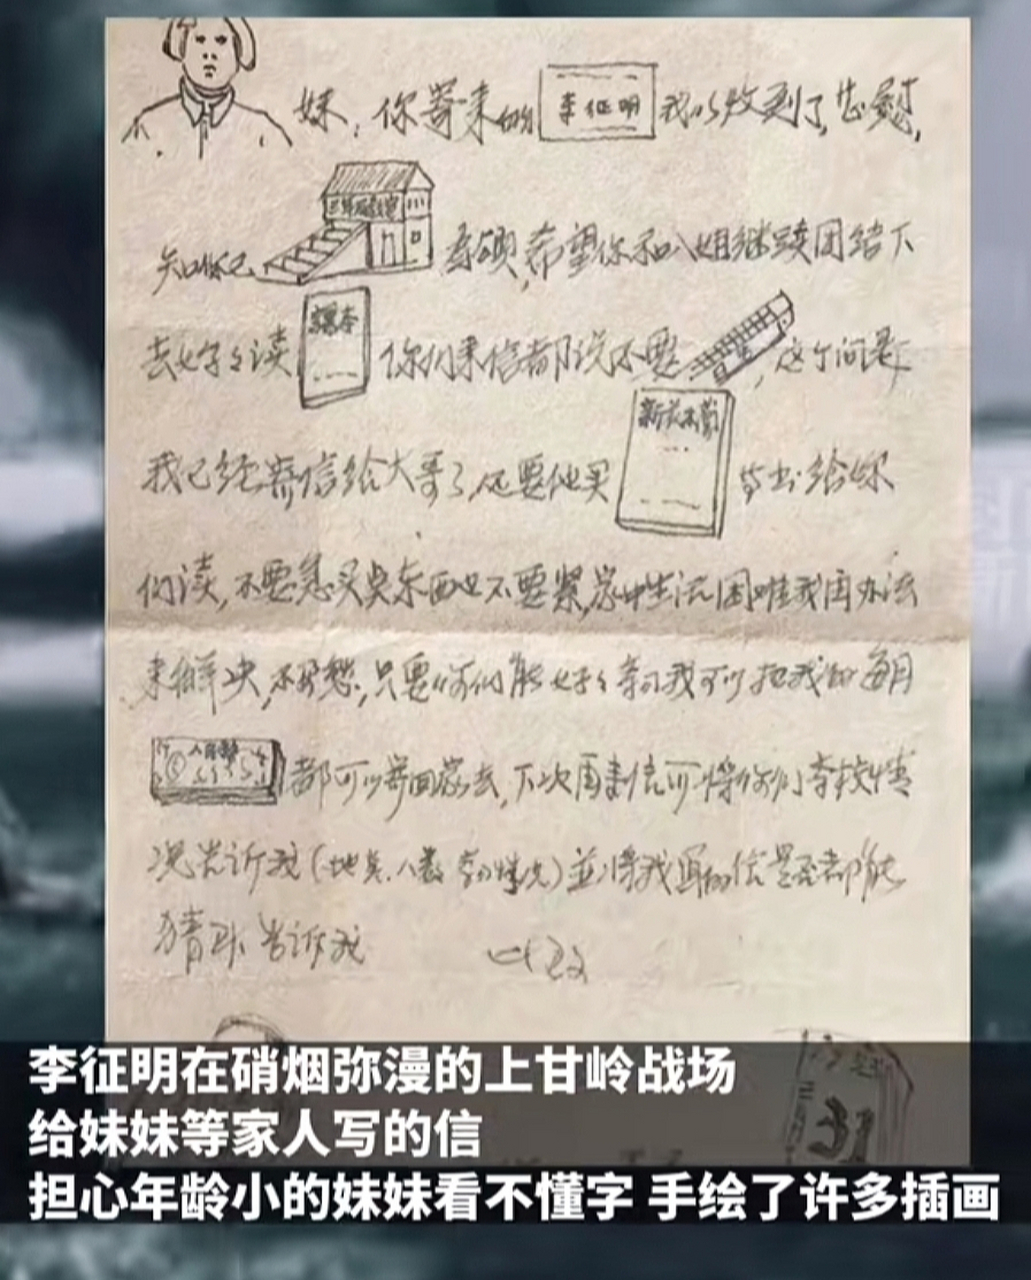 妹：你寄来的 李征明 我以收到了，告慰，
知你已 三年级教室 春硕，希望你和八姐继续团结下
去好好读 课本 你们来信都说不要，这个问题
我已经寄信给大哥了，还要他买 新芒木菊 等书给你
们读，不要急买点东西也不要紧，家中生活困难我由办法
来解决，不必愁，只要你们能好好学习我可以把我的每月
人民币 都可以寄回家去，下次再来信可将你们学校情
况告诉我（地点、人数 学习情况）並将我写的信是否都能
猜到告诉我
31
李征明在硝烟弥漫的上甘岭战场
给妹妹等家人写的信
担心年龄小的妹妹看不懂字 手绘了许多插画